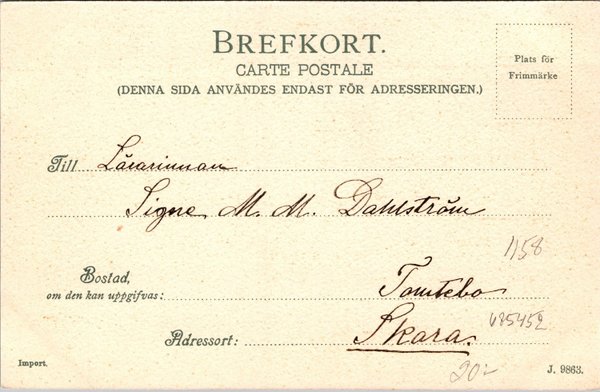 BREFKORT.
CARTE POSTALE
(DENNA SIDA ANVÄNDES ENDAST FÖR ADRESSERINGEN.)
Plats för
Frimmärke
Till Lärarinnan
Signe M. M. Dahlström
1158
Bostad, Tomtebo
om den kan uppgifvas:
685452
Adressort: Skara.
Import.
20:-
J. 9863.